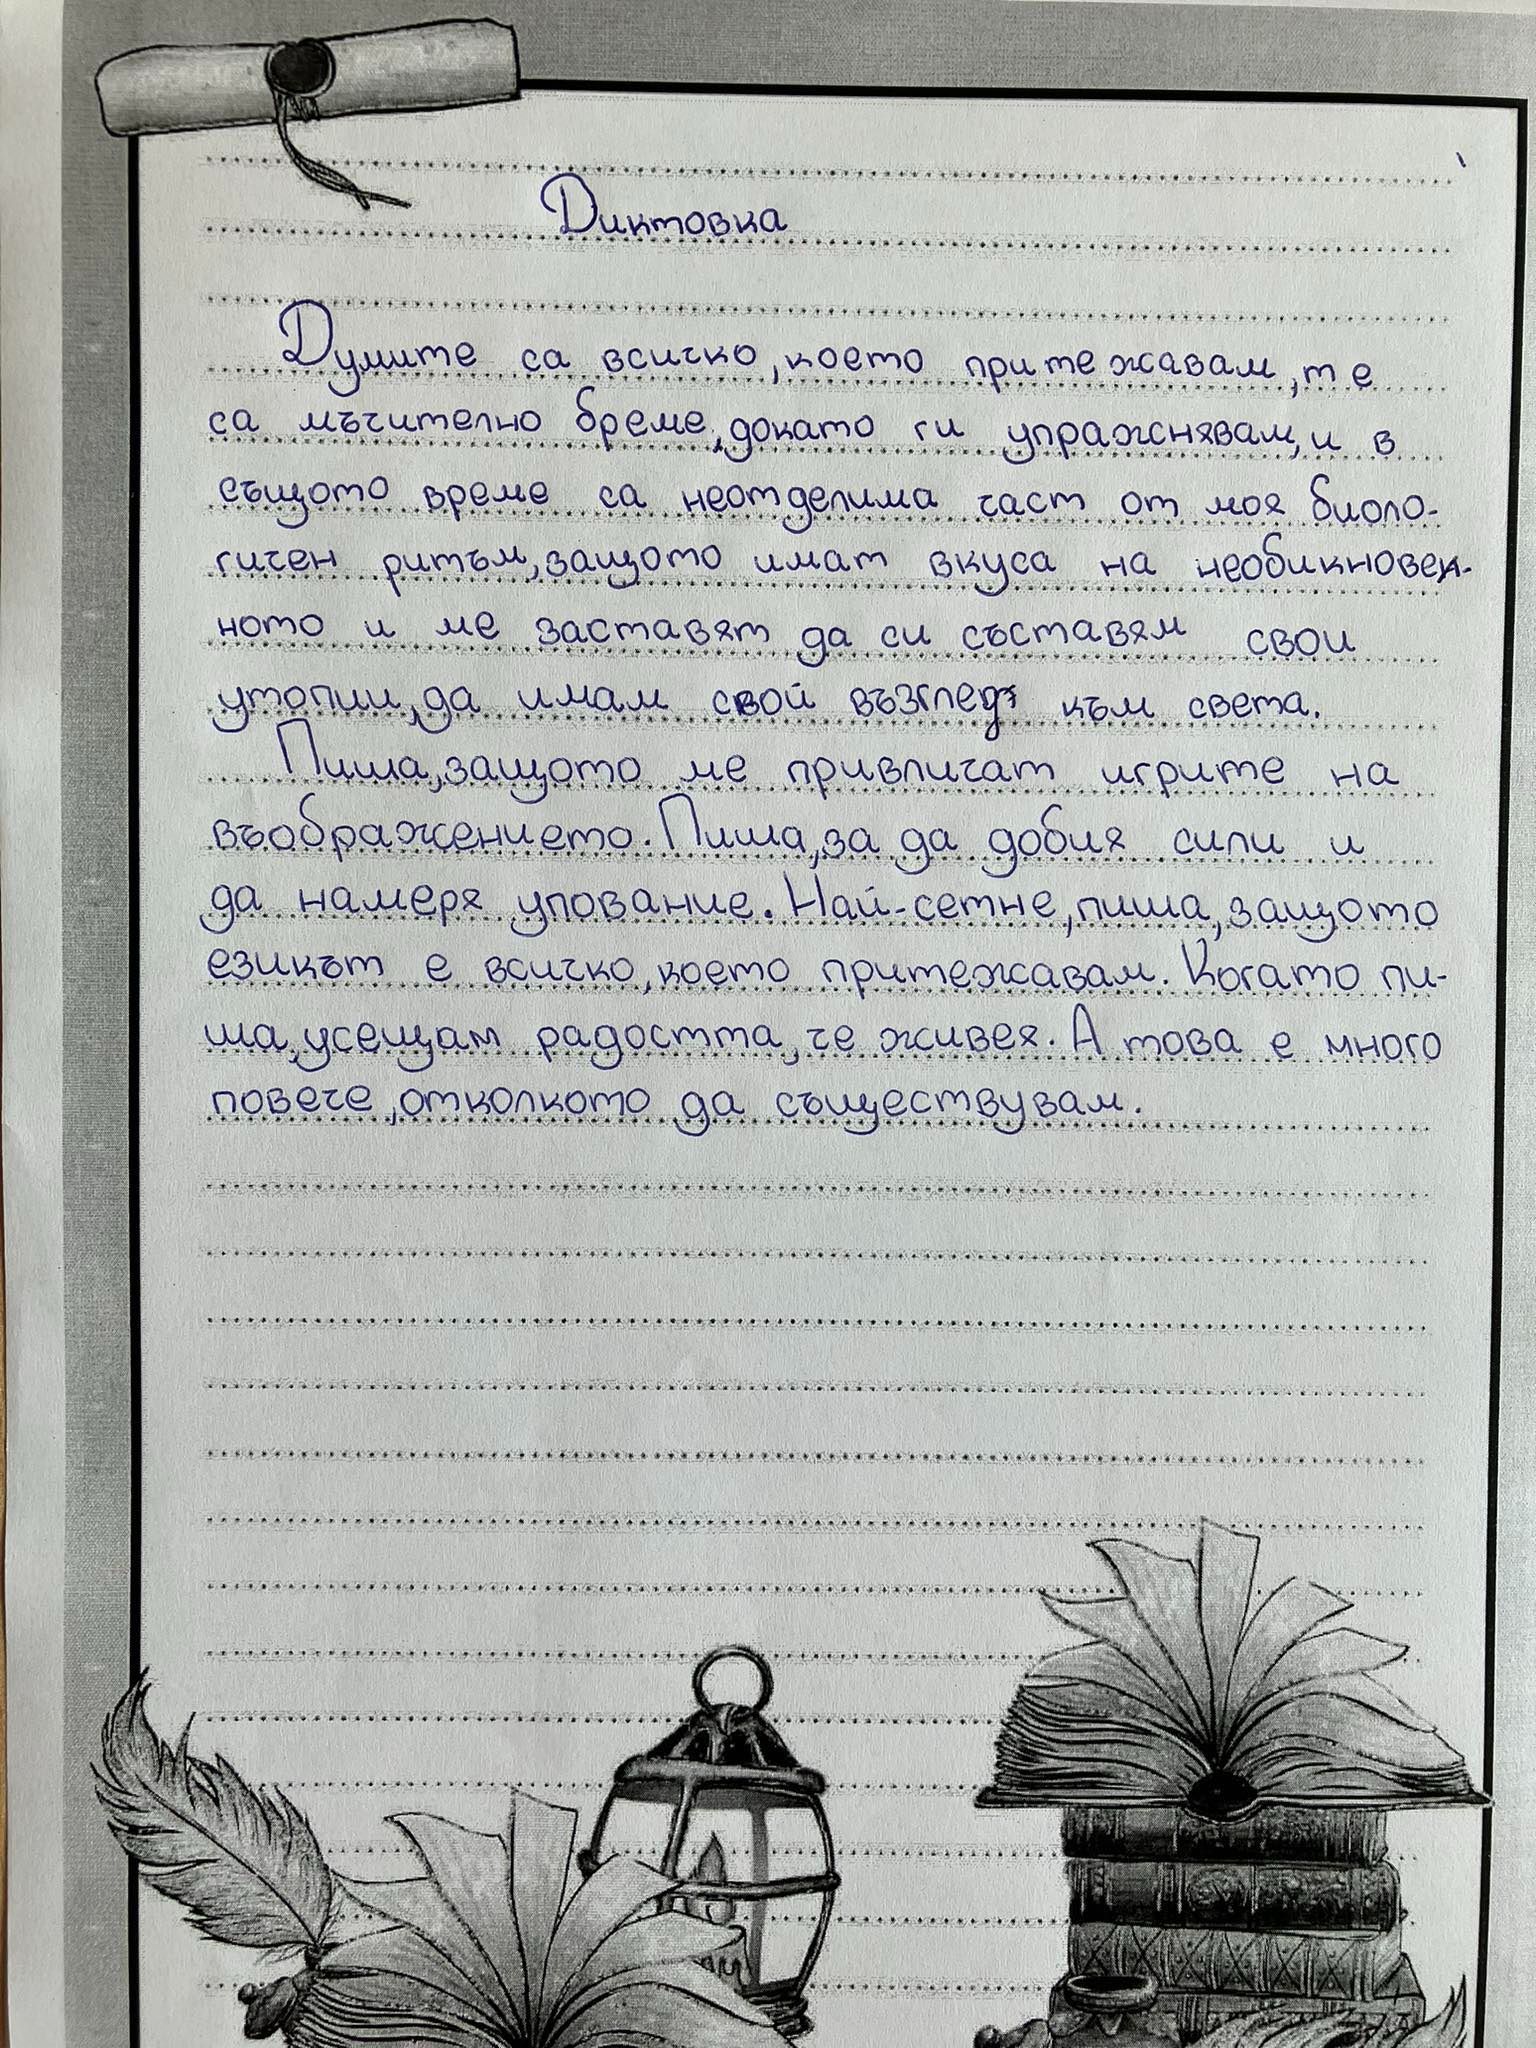 Диктовка
Думите са всичко, което притежавам, те
са мъчително бреме, докато ги упражнявам, и в
същото време са неотделима част от моя биоло-
гичен ритъм, защото имат вкуса на необикновен-
ното и ме заставят да си съставям свои
утопии, да имам свой възглед към света.
Пиша, защото ме привличат игрите на
въображението. Пиша, за да добия сили и
да намеря упование. Най-сетне, пиша, защото
езикът е всичко, което притежавам. Когато пи-
ша, усещам радостта, че живея. А това е много
повече, отколкото да съществувам.